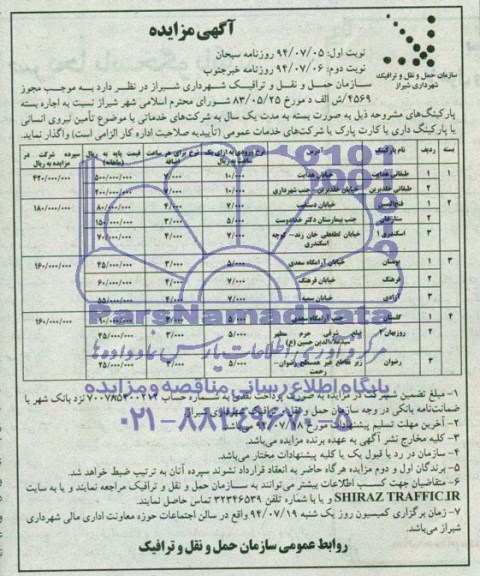 آگهی مزایده
سازمان حمل و نقل و ترافیک
شهرداری شیراز
نوبت اول: ۹۴/۰۷/۰۵ روزنامه سبحان
نوبت دوم: ۹۴/۰۷/۰۶ روزنامه خبرجنوب
سازمان حمل و نقل و ترافیک شهرداری شیراز در نظر دارد به موجب مجوز
۴۵۶۹/ش الف د مورخ ۸۳/۰۵/۲۵ شورای محترم اسلامی شهر شیراز نسبت به اجاره بسته
پارکینگ‌های مشروحه ذیل به صورت بسته به مدت یک سال به شرکت‌های خدماتی با موضوع تأمین نیروی انسانی
یا پارکینگ داری یا کارت پارک یا شرکت‌های خدمات عمومی (تأییدیه صلاحیت اداره کار الزامی است) واگذار نماید.
بسته ردیف نام پارکینگ آدرس نرخ ورودی به ازای یک ساعت به ریال نرخ برای هر ساعت اضافه قیمت پایه به ریال سپرده شرکت در مزایده به ریال
۱ ۱ طبقاتی هدایت خیابان هدایت ۱۰/۰۰۰ ۷/۰۰۰ ۵۰۰/۰۰۰/۰۰۰ ۴۲۰/۰۰۰/۰۰۰
۲ طبقاتی خلدبرین خیابان خلدبرین- جنب شهربازی ۱۰/۰۰۰ ۷/۰۰۰ ۲۰۰/۰۰۰/۰۰۰
۲ ۱ خیابان دستغیب ۷/۰۰۰ ۴/۰۰۰ ۸۰/۰۰۰/۰۰۰ ۱۸۰/۰۰۰/۰۰۰
۲ ستارخان جنب بیمارستان دکتر خدادوست ۵/۰۰۰ ۳/۰۰۰ ۱۵۰/۰۰۰/۰۰۰
۳ اسکندری خیابان لطفعلی خان زند- کوچه اسکندری ۷/۰۰۰ ۴/۰۰۰ ۷۰/۰۰۰/۰۰۰
۳ ۱ بوستان خیابان آرامگاه سعدی ۵/۰۰۰ ۳/۰۰۰ ۴۵/۰۰۰/۰۰۰ ۱۶۰/۰۰۰/۰۰۰
۲ فرهنگ خیابان فرهنگ ۷/۰۰۰ ۴/۰۰۰ ۶۰/۰۰۰/۰۰۰
۳ آزادی خیابان ۷/۰۰۰ ۵۵/۰۰۰/۰۰۰
۴ ۱ گلستان جنب آرامگاه سعدی ۵/۰۰۰ ۳/۰۰۰ ۹۰/۰۰۰/۰۰۰ ۱۶۰/۰۰۰/۰۰۰
۲ روزبهان ۲ ضلع شرقی حرم مطهر سیدعلاءالدین حسین (ع) ۵/۰۰۰ ۳/۰۰۰ ۴۵/۰۰۰/۰۰۰
۳ رضوان زیر تقاطع غیر همسطح رضوان- رحمت ۵/۰۰۰ ۳/۰۰۰ ۲۵/۰۰۰/۰۰۰
ParsNamadData
مرکز فرآوری اطلاعات پارس نماد داده‌ها
پایگاه اطلاع رسانی مناقصه و مزایده
۰۲۱-۸۸۳۴۹۶۷۰-۵
۱- مبلغ تضمین شرکت در مزایده به صورت پرداخت نقدی به شماره حساب ۷۰۰۷۸۵۳۰۰۲۱۴ نزد بانک شهر یا
ضمانت‌نامه بانکی در وجه سازمان حمل و نقل و ترافیک شهرداری شیراز
۲- آخرین مهلت تسلیم پیشنهادات مورخ ۹۴/۰۷/۱۸ می‌باشد.
۳- کلیه مخارج نشر آگهی به عهده برنده مزایده می‌باشد.
۴- سازمان در رد یا قبول یک یا کلیه پیشنهادات مختار می‌باشد.
۵- برندگان اول و دوم مزایده هرگاه حاضر به انعقاد قرارداد نشوند سپرده آنان به ترتیب ضبط خواهد شد.
۶- متقاضیان جهت کسب اطلاعات بیشتر می‌توانند به سازمان حمل و نقل و ترافیک مراجعه نمایند و یا به سایت
SHIRAZ TRAFFIC.IR و یا با شماره تلفن ۳۲۳۴۶۵۳۹ تماس حاصل نمایند.
۷- زمان برگزاری کمیسیون روز یک شنبه ۹۴/۰۷/۱۹ واقع در سالن اجتماعات حوزه معاونت اداری مالی شهرداری
شیراز می‌باشد.
روابط عمومی سازمان حمل و نقل و ترافیک